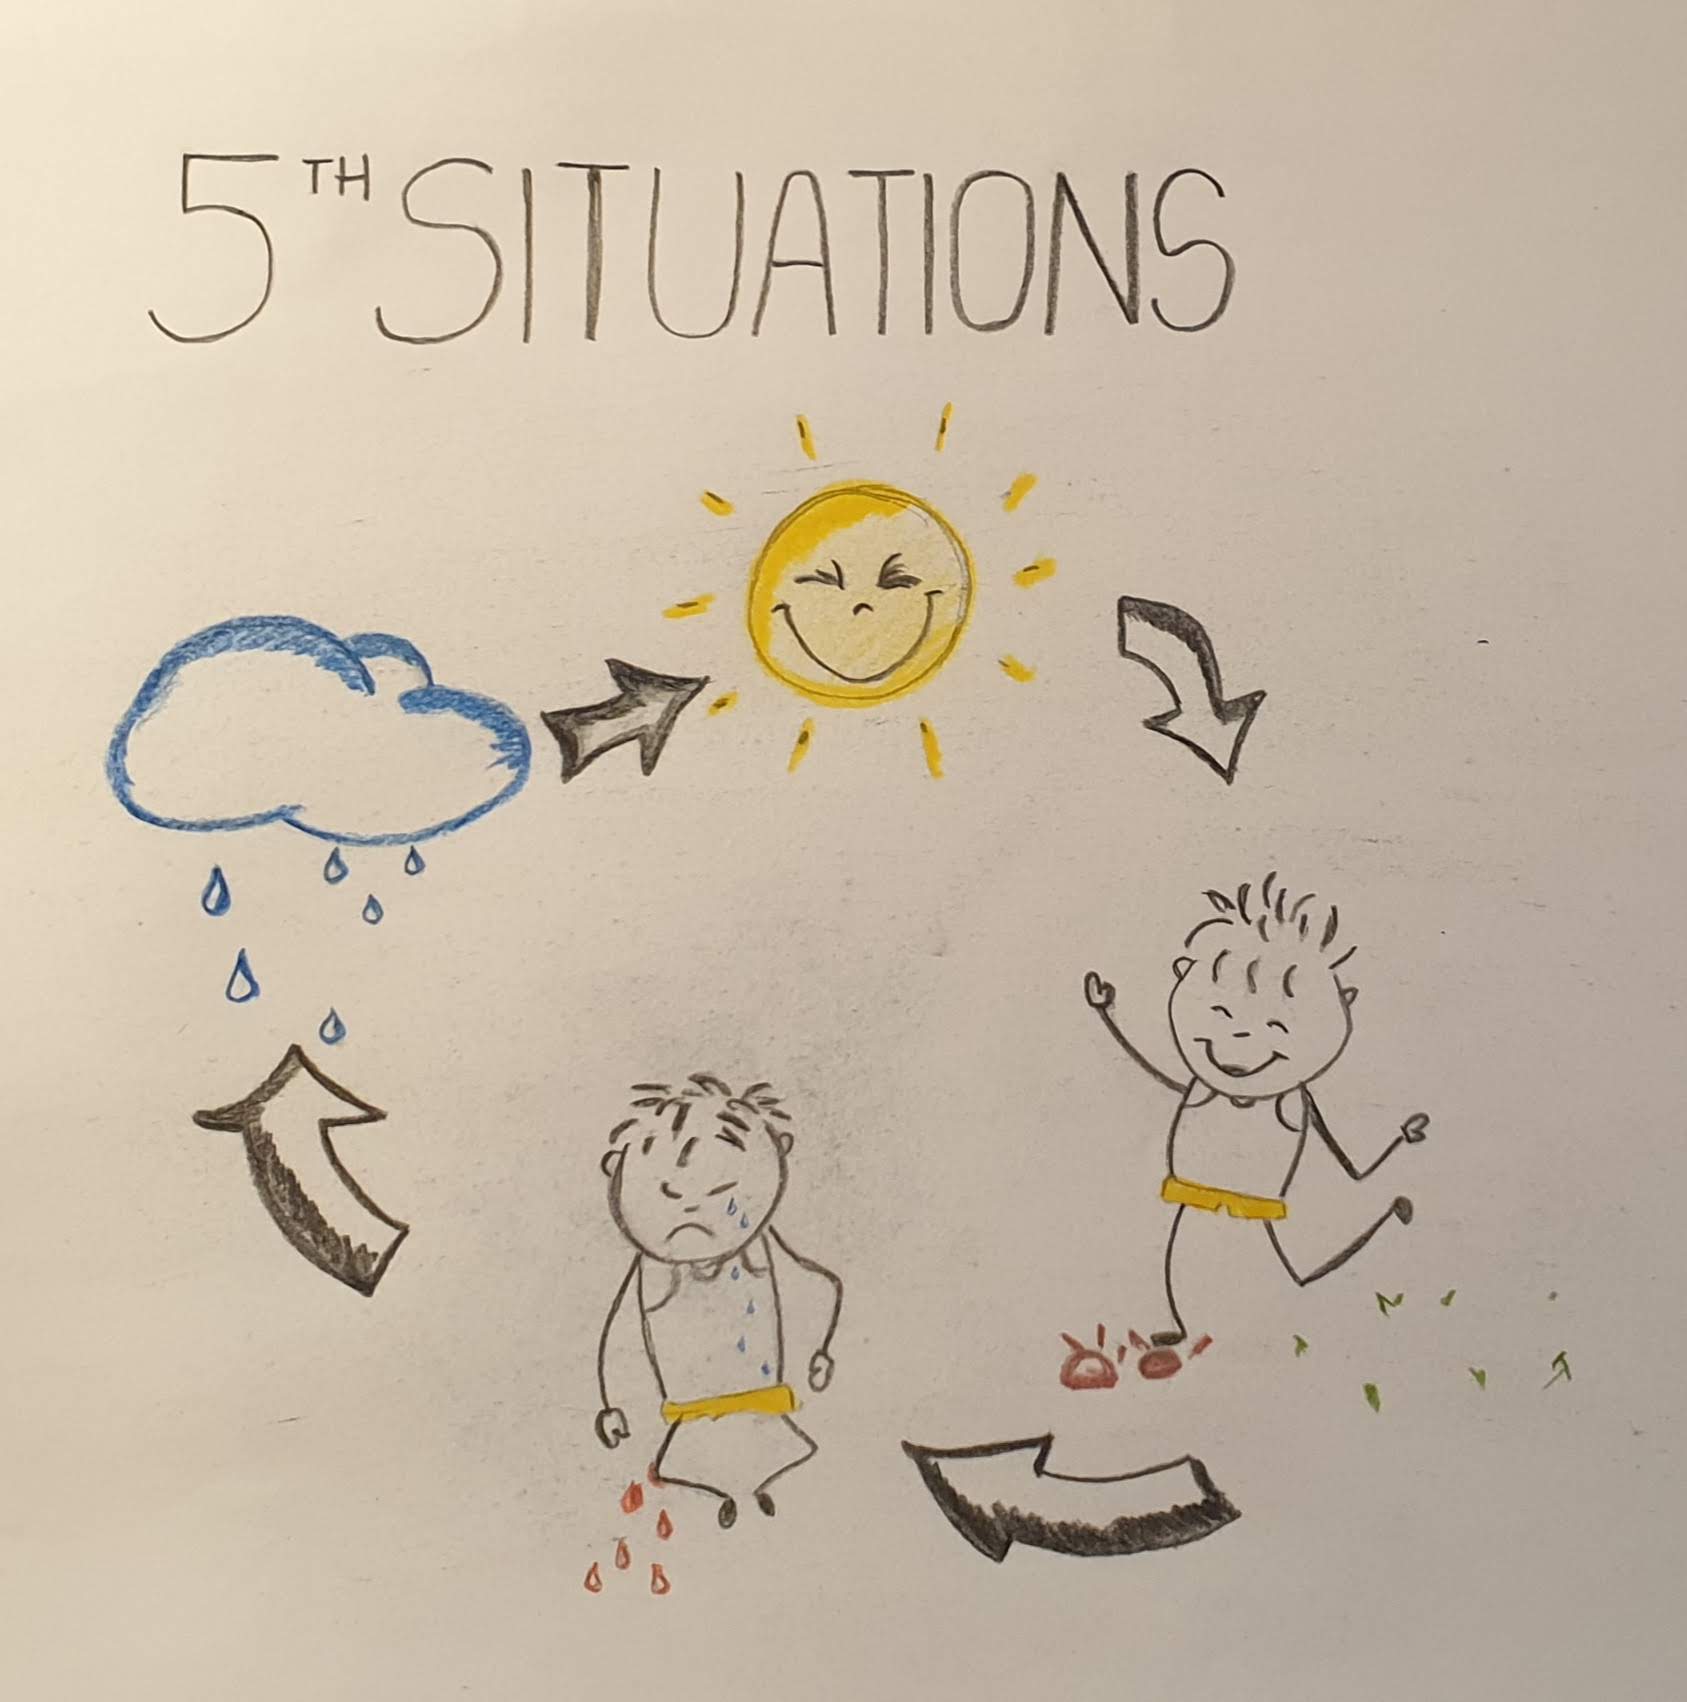 5TH SITUATIONS